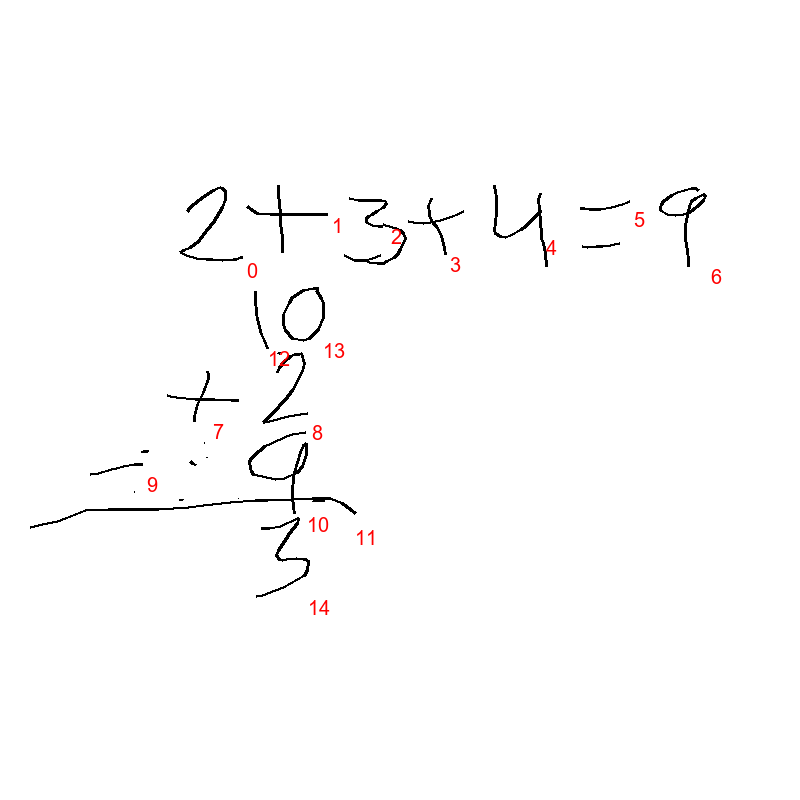 2+3+4=9
0 1 2 3 4 5 6
10
12 13
+ 2
7 8
- 9
9 10
11
3
14